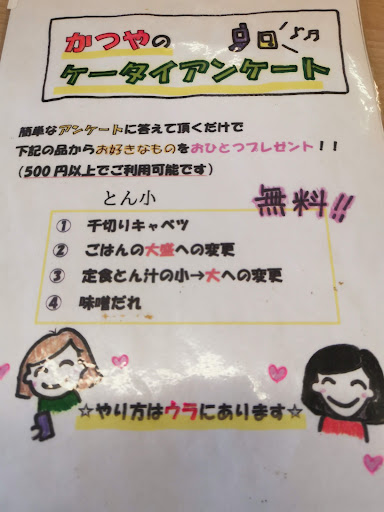 かつやの
ケータイアンケート
簡単なアンケートに答えて頂くだけで
下記の品からお好きなものをおひとつプレゼント！！
（500円以上でご利用可能です）
とん小
無料!!
① 千切りキャベツ
② ごはんの大盛への変更
③ 定食とん汁の小→大への変更
④ 味噌だれ
☆やり方はウラにあります☆